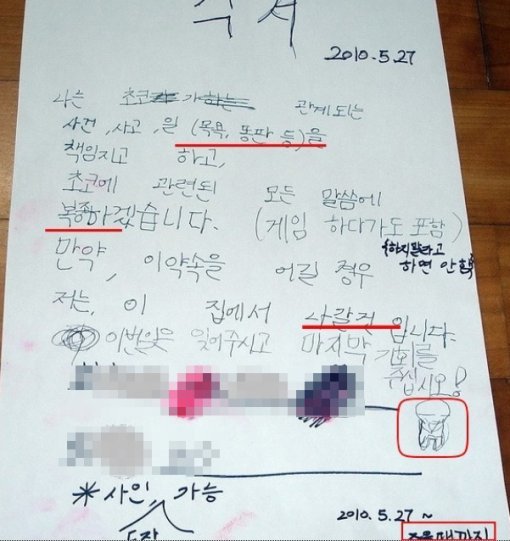 각서
2010.5.27
나는 초코가 관계되는
사건, 사고, 일 (목욕, 똥판 등)을
책임지고 하고,
초코에 관련된 모든 말씀에
복종하겠습니다. (게임 하다가도 포함)
(하지말라고 하면 안함)
만약, 이약속을 어길 경우
저는, 이 집에서 나갈것 입니다.
이번일은 잊어주시고 마지막 기회를
주십시오!
*사인, 가능
도장
2010.5.27 ~
죽을때까지